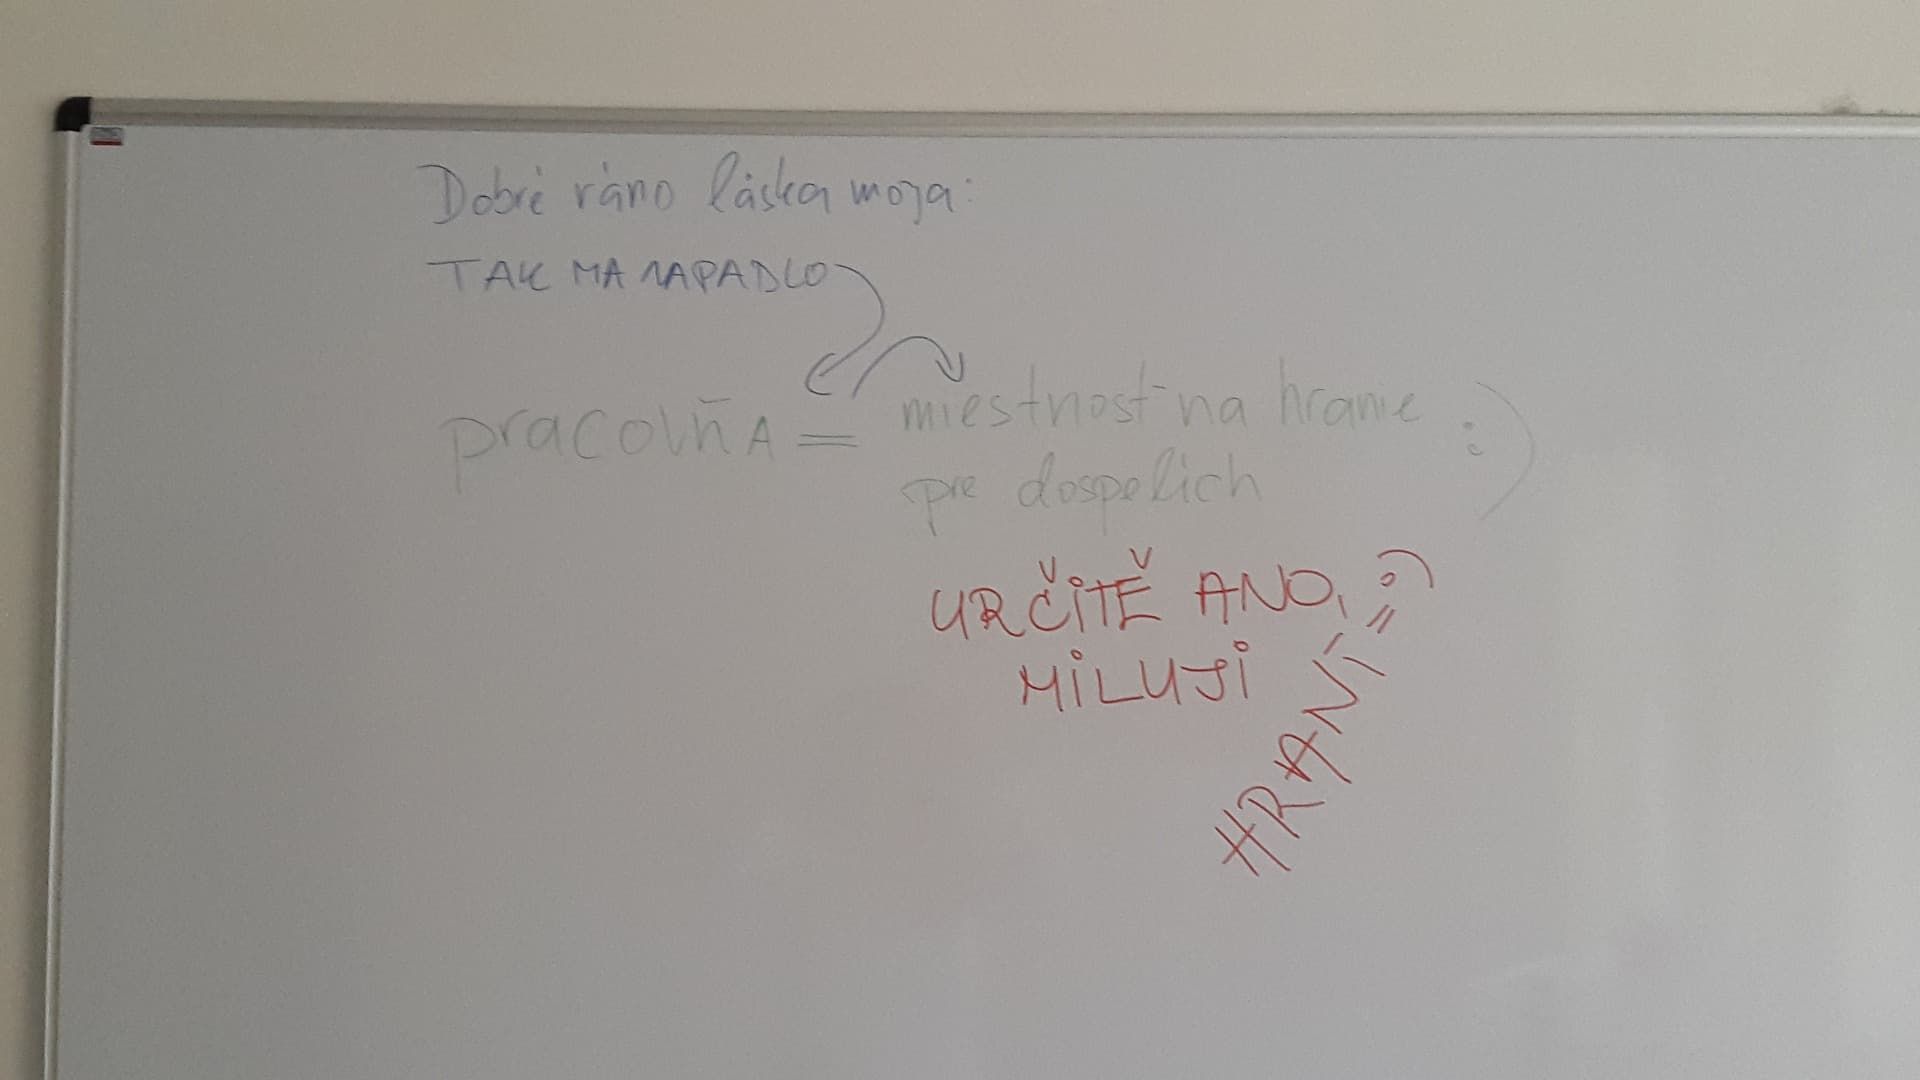 Dobré ráno láska moja:
TAK MA NAPADLO
pracovňA = miestnosť na hranie :)
pre dospelich
URČITĚ ANO, :)
MILUJI
HRANÍ =